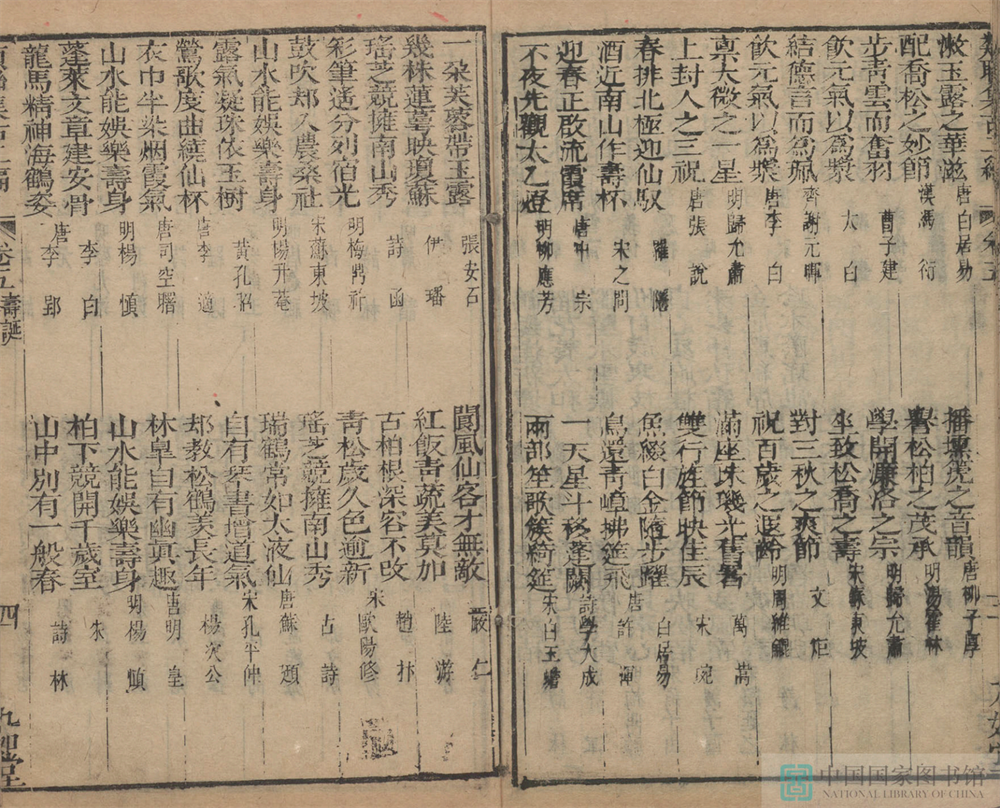 漱玉露之華滋 唐白居易
配喬松之妙節 漢馮衍
步青雲而奮羽 曹子建
飲元氣以為漿 太白
結德言而為珮 齊謝元暉
飲元氣以為漿 唐李白
稟太微之一星 明歸允肅
上封人之三祝 唐張說
春排北極迎仙馭 羅隱
酒近南山作壽杯 宋之問
迎春正啟流霞席 唐中宗
不夜先觀太乙燈 明柳應芳
播壎箎之音韻 唐柳子厚
譽松柏之茂承 明湯霍林
學開濂洛之宗 明歸允肅
坐致松喬之壽 宋蘇東坡
對三秋之爽節 文炬
祝百歲之遐齡 明周維鯤
滿座珠璣光舊署 萬
雙行旌節映佳辰 宋宛
魚綴白金隨步躍 白居易
鳥還青嶂拂筵飛 唐許渾
一天星斗移蓬闕 詩學大成
兩部笙歌簇綺筵 宋白玉蟾
一朶芙蓉帶玉露 張安石
幾株蓮萼映瓊蘇 伊璠
瑤芝競擁南山秀 詩函
彩筆遙分列宿光 明梅鼎祚
鼓吹却入農桑社 宋蘇東坡
山水能娛樂壽身 明楊升菴
露氣凝珠依玉樹 黃孔昭
鶯歌度曲繞仙杯 唐李適
衣巾半染烟霞氣 唐司空曙
山水能娛樂壽身 明楊慎
蓬萊文章建安骨 李白
龍馬精神海鶴姿 唐李郢
卷五壽誕
閬風仙客才無敵 嚴仁
紅飯青蔬美莫加 陸游
古柏根深容不改 趙抃
青松歲久色逾新 宋歐陽修
瑤芝競擁南山秀 古詩
瑞鶴常如太液仙 唐蘇頲
自有琴書增道氣 宋孔平仲
却教松鶴羨長年 楊次公
林皐自有幽貞趣 唐明皇
山水能娛樂壽身 明楊慎
柏下競開千歲至 朱
山中別有一般春 詩林
四
九如堂
中国国家图书馆
NATIONAL LIBRARY OF CHINA